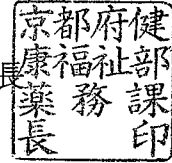 長
京都府健
康福祉部
藥務課
長印